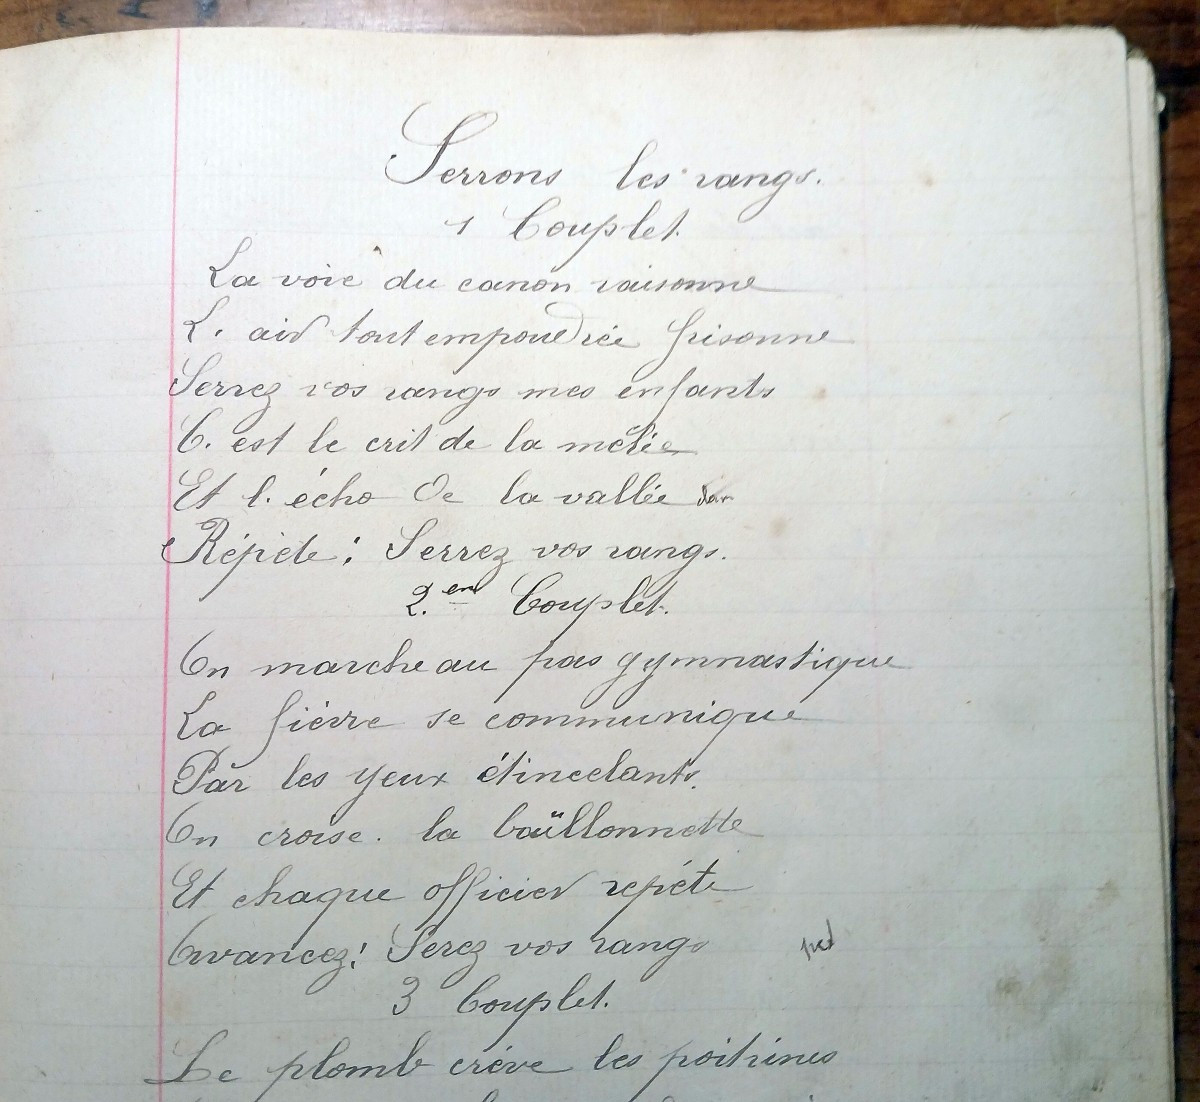 Serrons les rangs.
1 Couplet.
La voie du canon raisonne
L. air tout empoudrée frisonne
Serrez vos rangs mes enfants
C. est le crit de la mélée
Et l. écho De la vallée
Répéte : Serrez vos rangs.
2.em Couplet.
On marche au pas gymnastique
La fiérre se communique
Par les yeux étincelants.
On croise. la baüllonnette
Et chaque officier repéte
Avancez! Serez vos rangs
3 Couplet.
Le plomb créve les poitrines